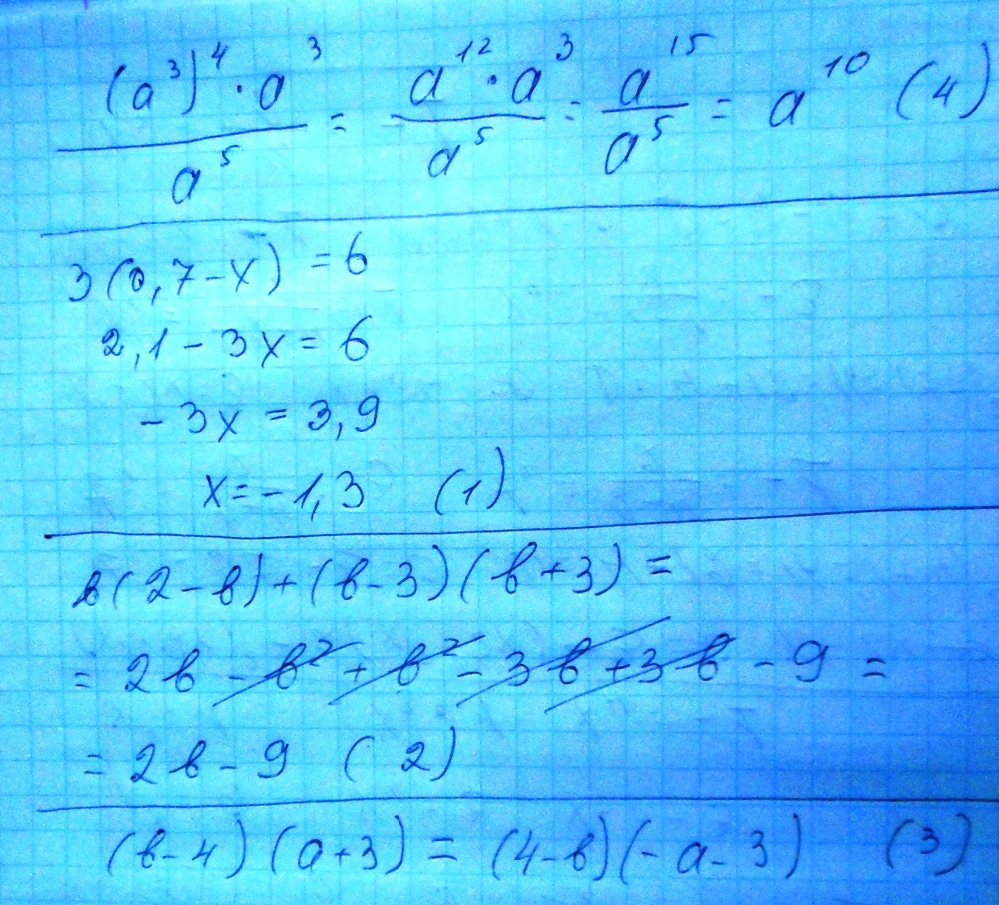 (a³)⁴ · a³ / a⁵ = a¹² · a³ / a⁵ = a¹⁵ / a⁵ = a¹⁰ (4)
3(0,7-x) = 6
2,1 - 3x = 6
- 3x = 3,9
x = - 1,3 (1)
в(2-в)+(в-3)(в+3) =
= 2в - в² + в² - 3в + 3в - 9 =
= 2в - 9 (2)
(в-4)(a+3) = (4-в)(-a-3) (3)